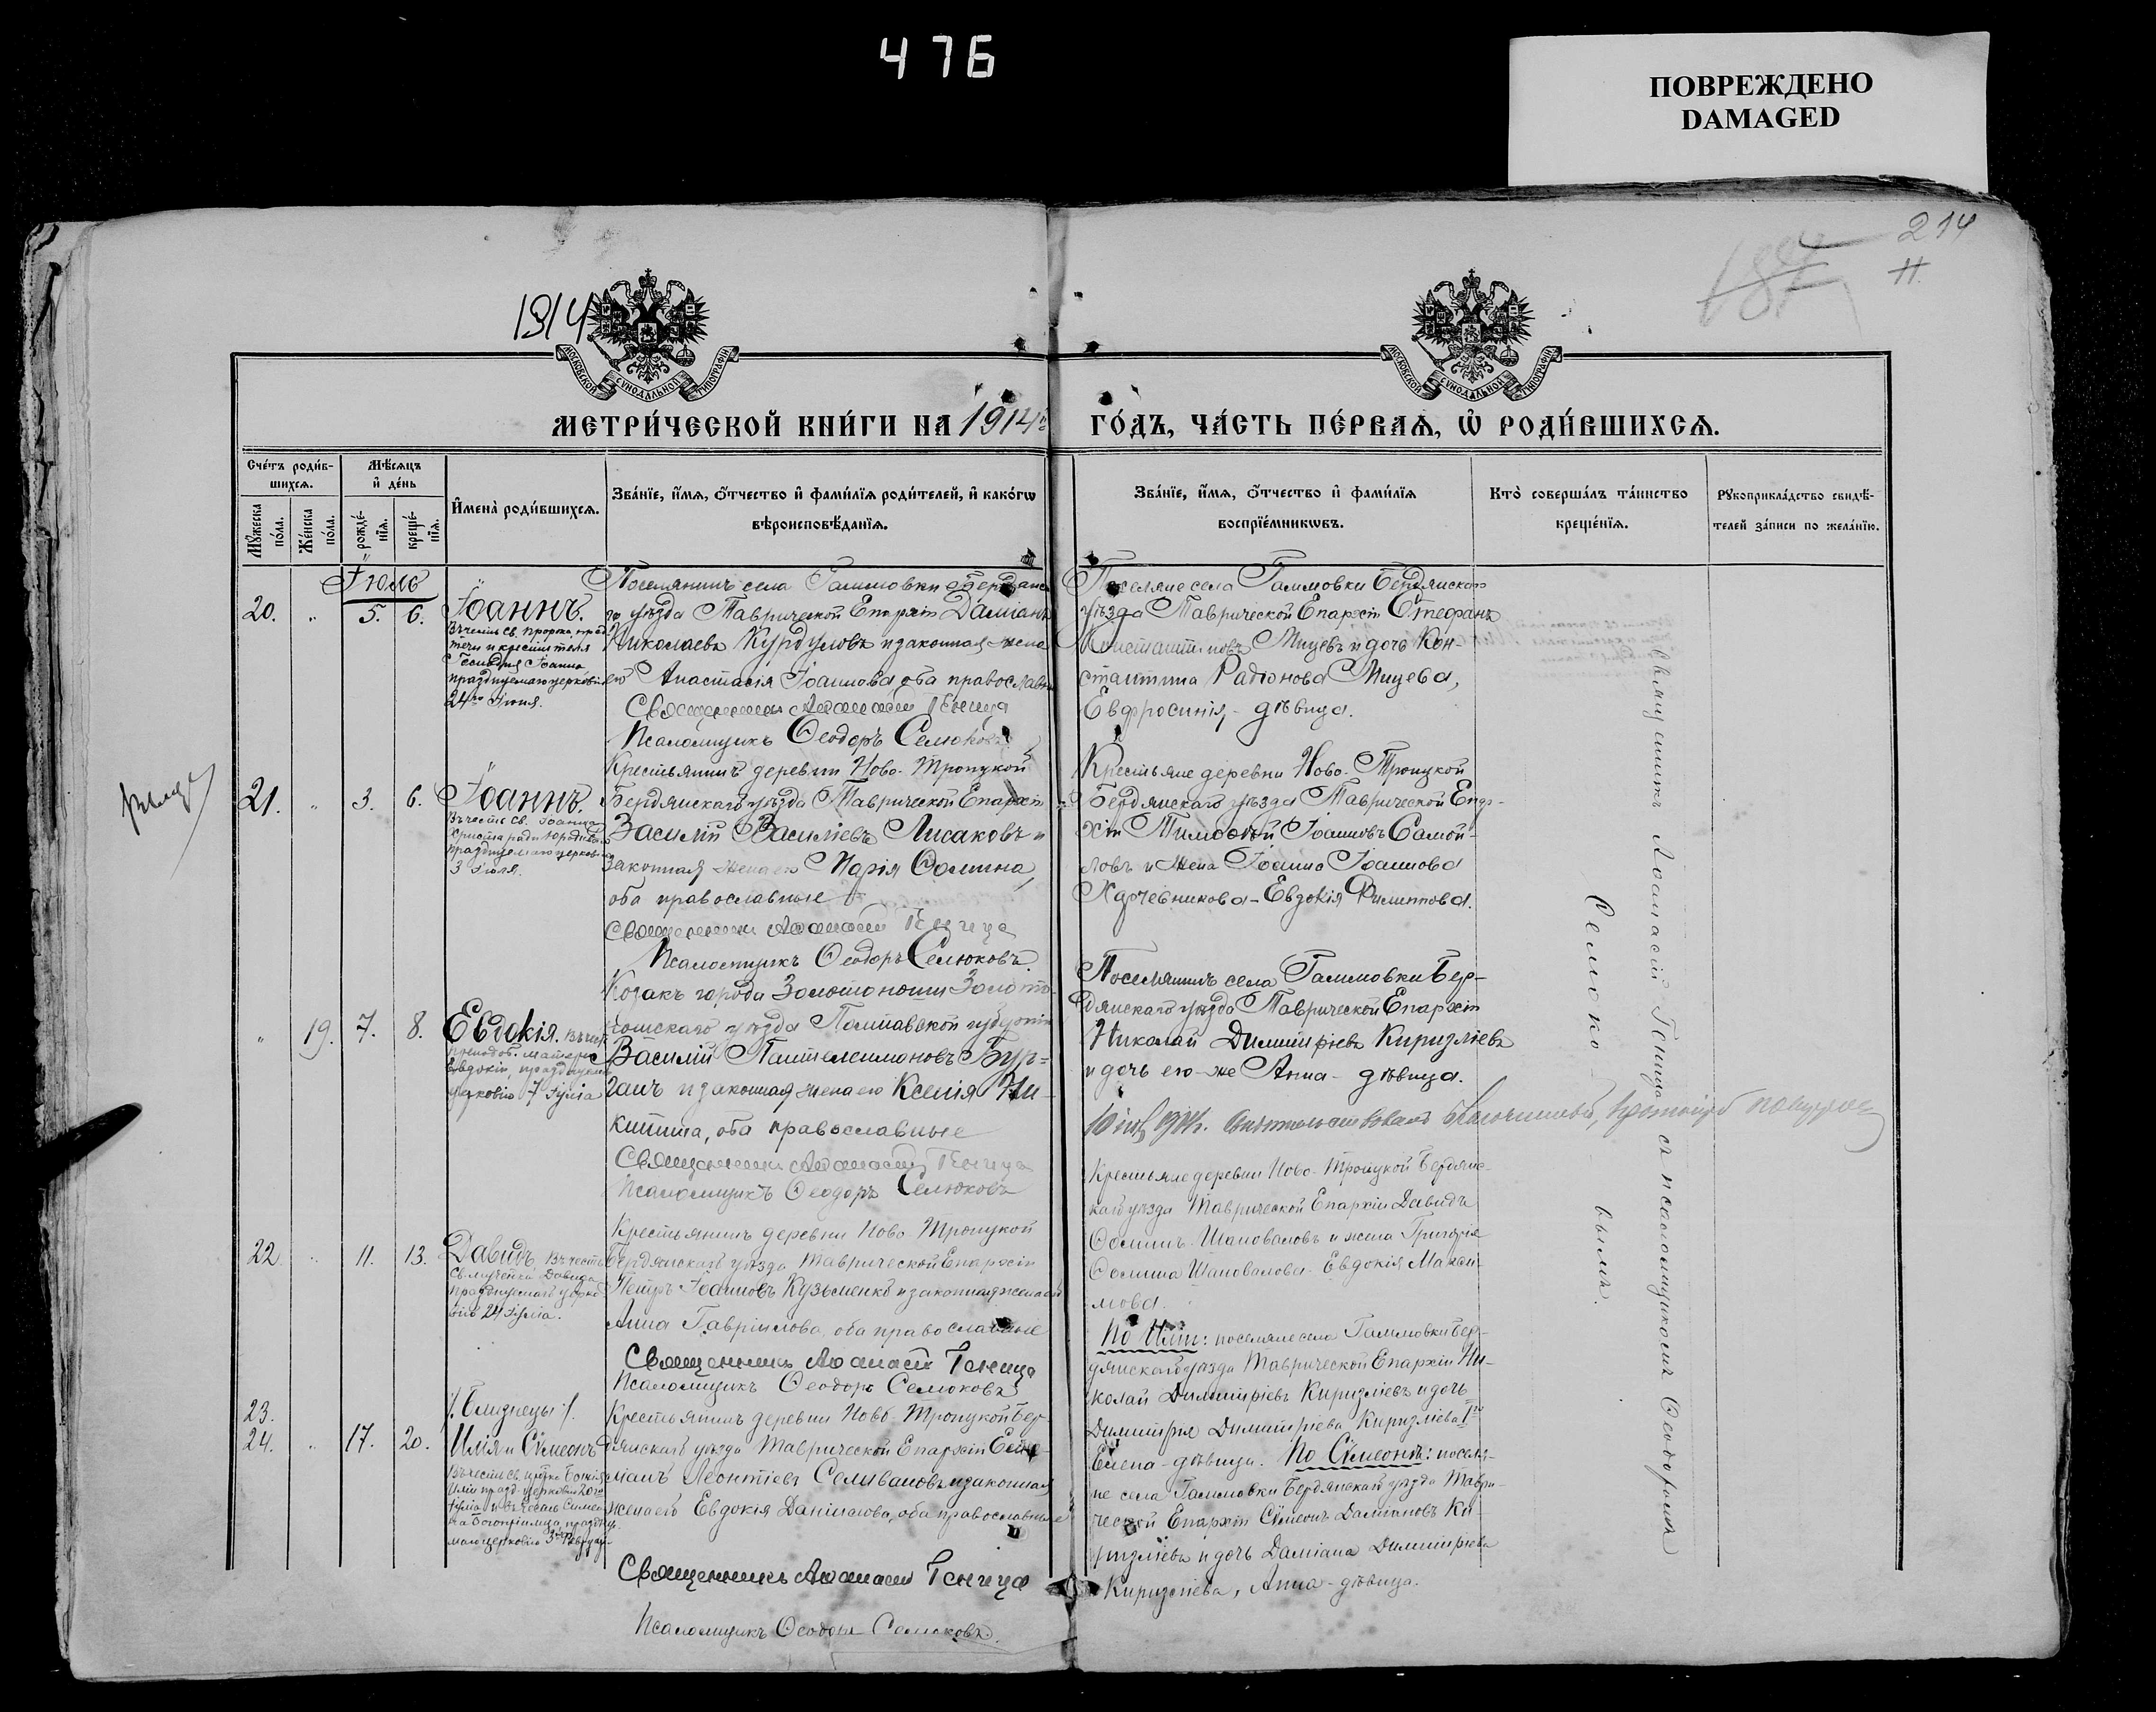 476
ПОВРЕЖДЕНО
DAMAGED
214
187
11.
1914
МОСКОВСКОЙ СУНОДАЛЬНОЙ ТИПОГРАФІИ
МОСКОВСКОЙ СУНОДАЛЬНОЙ ТИПОГРАФІИ
МЕТРИ́ЧЕСКОЙ КНИ́ГИ НА 1914й ГО́ДЪ, ЧА́СТЬ ПЕ́РВАѦ, Ѡ҆ РОДИ́ВШИХСѦ.
Сче́тъ роди́в-
шихсѧ.
Мѣ́сѧцъ
и҆ де́нь
Мꙋ́жеска по́ла.
Же́нска по́ла.
рожде́-
нїѧ.
креще́-
нїѧ.
И҆мена̀ роди́вшихсѧ.
Зва́нїе, и҆́мѧ, ѻ҆́тчество и҆ фами́лїѧ роди́телей, и҆ како́гѡ
вѣроисповѣ́данїѧ.
Зва́нїе, и҆́мѧ, ѻ҆́тчество и҆ фами́лїѧ
воспрїе́мникѡвъ.
Кто̀ соверша́лъ та́инство
креще́нїѧ.
Рꙋкоприкла́дство свидѣ́-
телей за́писи по жела́нїю.
Іюль
20. " 5. 6.
Іоаннъ.
Въ честь св. пророка, пред-
течи и крестителя
Господня Іоанна,
празднуемаго церковію
24го Іюня.
Поселянинъ села Гаммовки Бердянска-
го уѣзда Таврической Епархіи Даміанъ
Николаевъ Курдуловъ и законная жена
его Анастасія Іоаннова, оба православные
Священникъ Аѳанасій Геница
Псаломщикъ Ѳеодоръ Селюковъ
Поселяне села Гаммовки Бердянскаго
уѣзда Таврической Епархіи Стефанъ
Константиновъ Мицевъ и дочь Кон-
стантина Радіонова Мицева,
Евфросинія - дѣвица.
21. " 3. 6.
Іоаннъ.
Въ честь св. Іоанна
Христа ради юродиваго
празднуемаго церковію
3 Іюля.
Крестьянинъ деревни Ново-Троицкой
Бердянскаго уѣзда Таврической Епархіи
Василій Василіевъ Лисаковъ и
законная жена его Марія Ѳомина,
оба православные
Священникъ Аѳанасій Геница
Псаломщикъ Ѳеодоръ Селюковъ.
Крестьяне деревни Ново-Троицкой
Бердянскаго уѣзда Таврической Епар-
хіи Тимоѳей Іоанновъ Самой-
ловъ и жена Іоанна Іоаннова
Харчевникова - Евдокія Филиппова.
" 19. 7. 8.
Евдокія. Въ честь
преподоб. матери
Евдокіи, празднуемой
церковію 7 Іулія
Козакъ города Золотоноши Золото-
ношскаго уѣзда Полтавской губерніи
Василій Пантелеимоновъ Бур-
ганъ и законная жена его Ксенія Ни-
китина, оба православные
Священникъ Аѳанасій Геница
Псаломщикъ Ѳеодоръ Селюковъ
Поселянинъ села Гаммовки Бер-
дянскаго уѣзда Таврической Епархіи
Николай Димитріевъ Киризліевъ
и дочь его-же Анна - дѣвица.
22. " 11. 13.
Давидъ. Въ честь
св. мученика Давида
празднуемаго церко-
вію 24 Іулія.
Крестьянинъ деревни Ново-Троицкой
Бердянскаго уѣзда Таврической Епархіи
Петръ Іоанновъ Кузьменко и законная жена его
Анна Гавріилова, оба православные
Священникъ Аѳанасій Геница
Псаломщикъ Ѳеодоръ Селюковъ
Крестьяне деревни Ново-Троицкой Бердянс-
каго уѣзда Таврической Епархіи Давидъ
Ѳоминъ Шаповаловъ и жена Григорія
Ѳомина Шаповалова Евдокія Макси-
мова.
23.
24. " 17. 20.
/. Близнецы ./
Илія и Сѷмеонъ
Крестьянинъ деревни Ново-Троицкой Бер-
дянскаго уѣзда Таврической Епархіи
Леонтіевъ Селивановъ и законная
жена его Евдокія Даніилова, оба православные
Священникъ Аѳанасій Геница
Псаломщикъ Ѳеодоръ Селюковъ.
По Иліи: поселяне села Гаммовки Бер-
дянскаго уѣзда Таврической Епархіи Ни-
колай Димитріевъ Киризліевъ и дочь
Димитрія Димитріева Киризліева 1го
Елена - дѣвица. По Сѷмеонѣ: поселя-
не села Гаммовки Бердянскаго уѣзда Таври-
ческой Епархіи Сѷмеонъ Даміановъ Ки-
ризліевъ и дочь Даміана Димитріева
Киризліева, Анна - дѣвица.
Священникъ Аѳанасій Геница съ псаломщикомъ Ѳеодоромъ
Селюко-
вымъ.